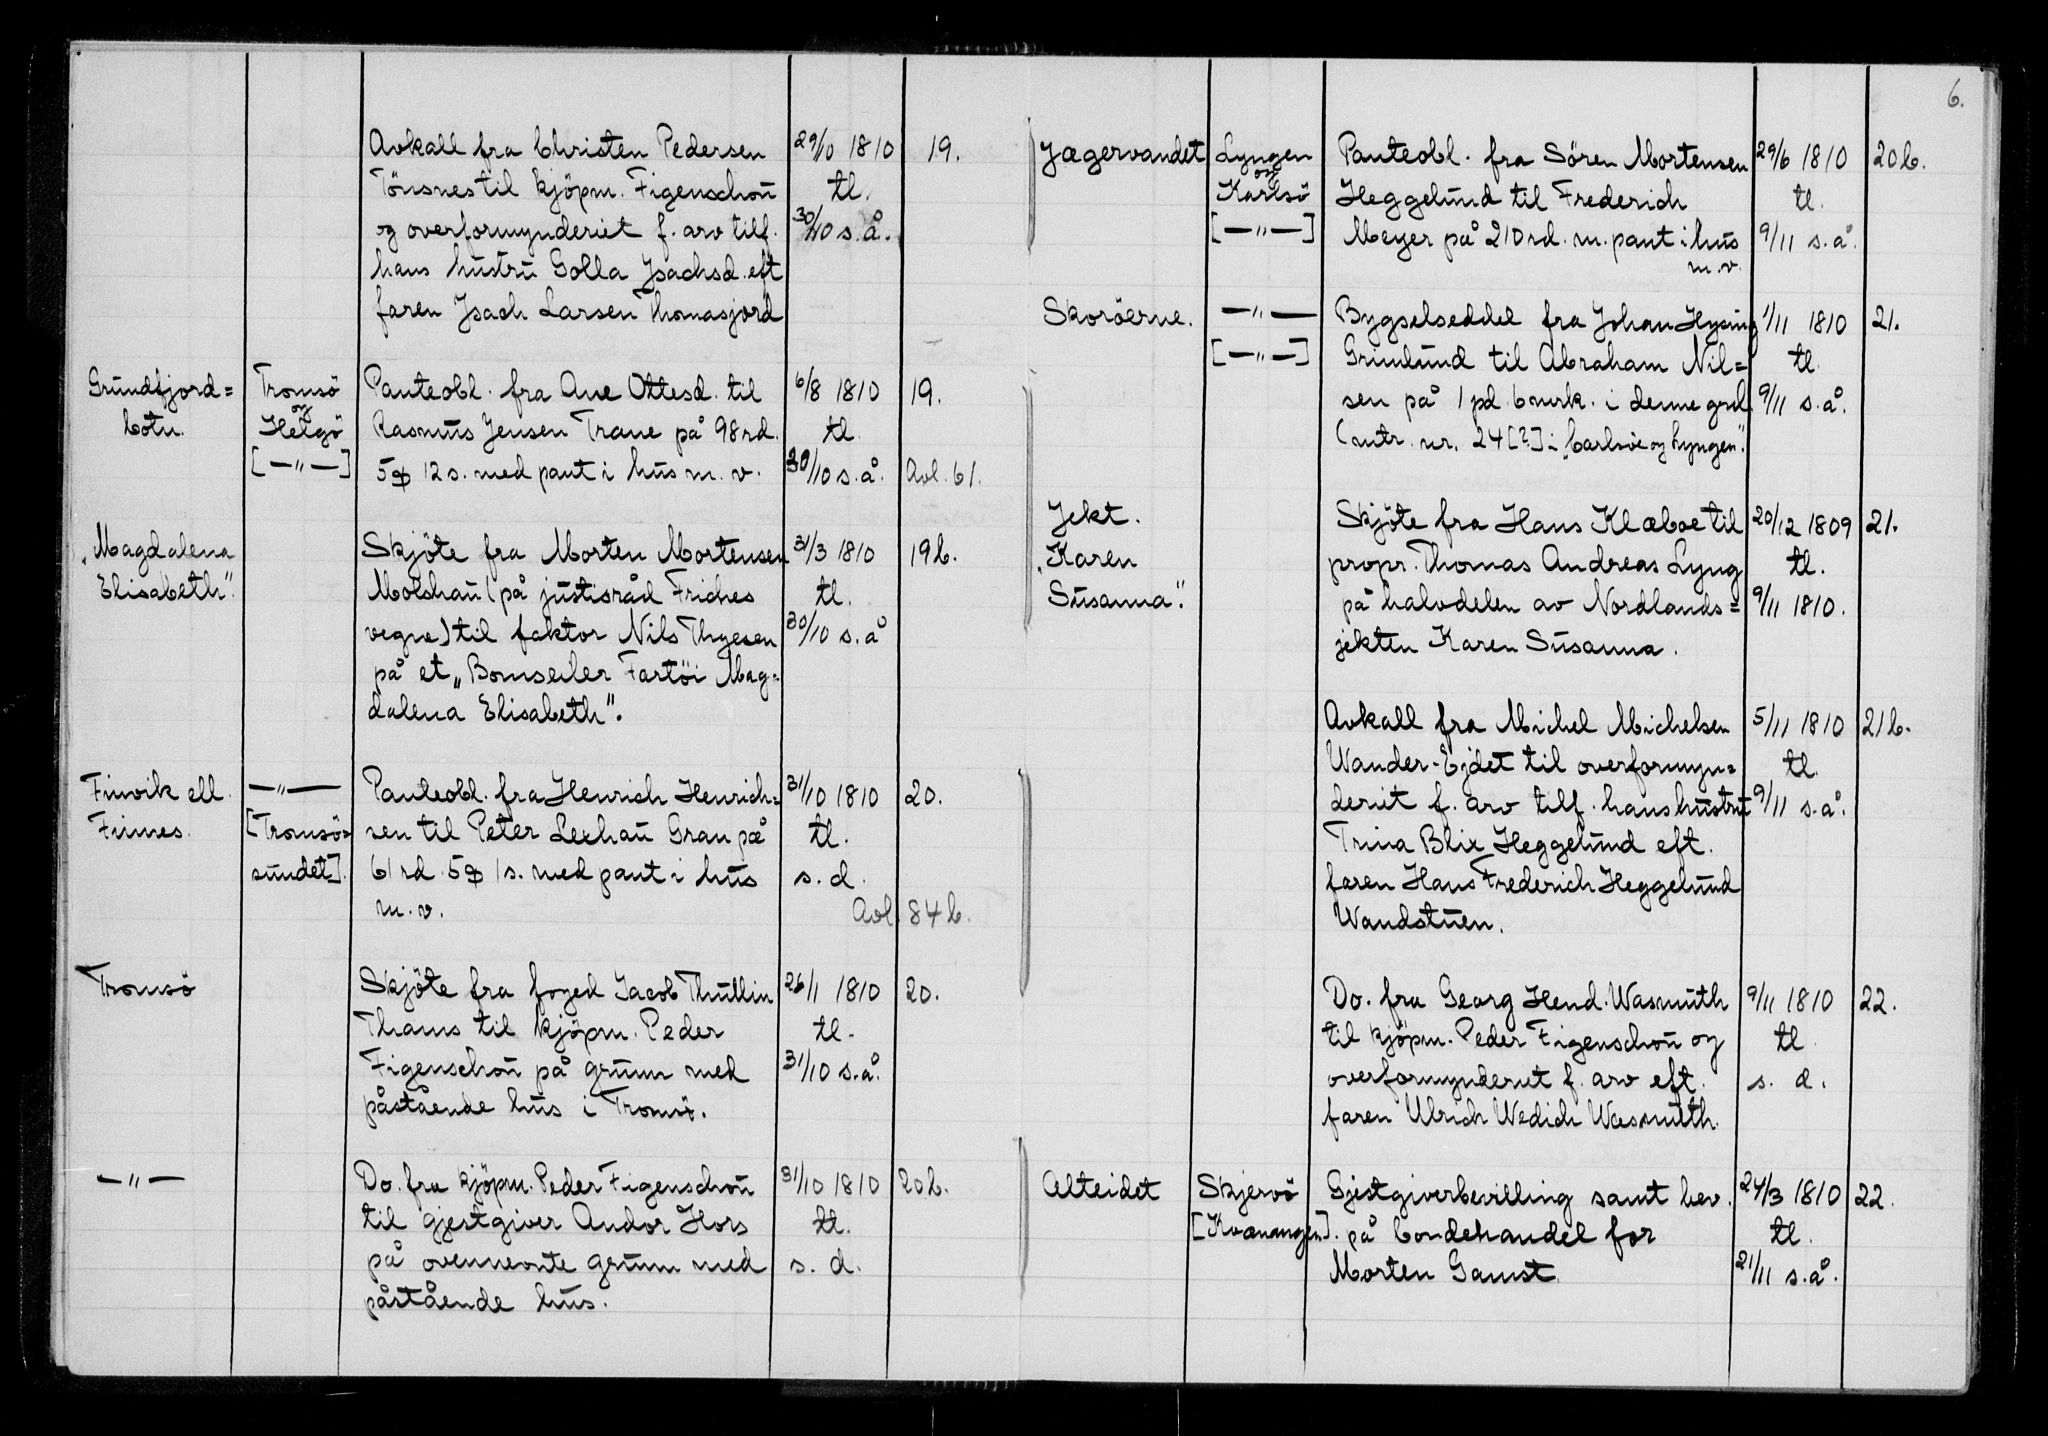 6.
Avkall fra Christen Pedersen 29/10 1810 19.
Tönsnes til kjöpm. Figenschou tl.
og overformynderiet f. arv tilf. 30/10 s.å.
hans hustru Golla Jsachsd. eft
faren Jsach Larsen Thomasjord
Grundfjord= Tromsö Panteobl. fra Ane Ottesd. til 6/8 1810 19.
botn. og Helgö Rasmus Jensen Trane på 98 rd. tl.
[—"—] 5 12 s. med pant i hus m. v. 30/10 s.å. Avl. 61.
„Magdalena Skjöte fra Morten Mortensen 31/3 1810 19b.
Elisabeth". Molshau (på justisråd Friches tl.
vegne) til faktor Nils Thyesen 30/10 s.å
på et „Bomseiler Fartöi Mag=
dalena Elisabeth".
Finvik ell. —"— Panteobl. fra Henrich Henrich= 31/10 1810 20.
Finnes. [Tromsö= sen til Peter Lexhau Gran på tl.
sundet]. 61 rd. 5 1 s. med pant i hus s. d.
m. v. Avl. 84b.
Tromsö Skjöte fra foged Jacob Thullin 26/1 1810 20.
Thams til kjöpm. Peder tl.
Figenschou på grunn med 31/10 s.å.
påstående hus i Tromsö.
—"— Do. fra kjöpm. Peder Figenschou 31/10 1810 20b.
til gjestgiver Andor Hors tl.
på ovennevnte grunn med s. d.
påstående hus.
Jægervandet Lyngen Panteobl. fra Sören Mortensen 29/6 1810 20b.
og Karlsö Heggelund til Frederich tl.
[—"—] Meyer på 210 rd. m. pant i hus 9/11 s.å.
m.v.
Skoröerne. —"— Bygselseddel fra Johan Hysing 1/11 1810 21.
[—"—] Grinlund til Abraham Nil= tl.
sen på 1 pd. 6 mrk. i denne grd. 9/11 s.å.
(mtr. nr. 24 [?] i „Carlsöe og Lyngen".
Jekt. Skjöte fra Hans Klæboe til 20/12 1809 21.
„Karen propr. Thomas Andreas Lyng tl.
Susanna". på halvdelen av Nordlands= 9/11 1810.
jekten Karen Susanna.
Avkall fra Michel Michelsen 5/11 1810 21b.
Wander-Ejdet til overformyn= tl.
deriet f. arv tilf. hans hustru 9/11 s.å.
Trina Blix Heggelund eft.
faren Hans Frederich Heggelund
Wandstuen.
Do. fra Georg Hend. Wasmuth 9/11 1810 22.
til kjöpm. Peder Figenschou og tl.
overformynderiet f. arv eft. s. d.
faren Ulrich Wedich Wasmuth.
Alteidet Skjervö Gjestgiverbevilling samt bev. 24/3 1810 22.
[Kvænangen]. på bondehandel for tl.
Morten Gamst. 21/11 s.å.